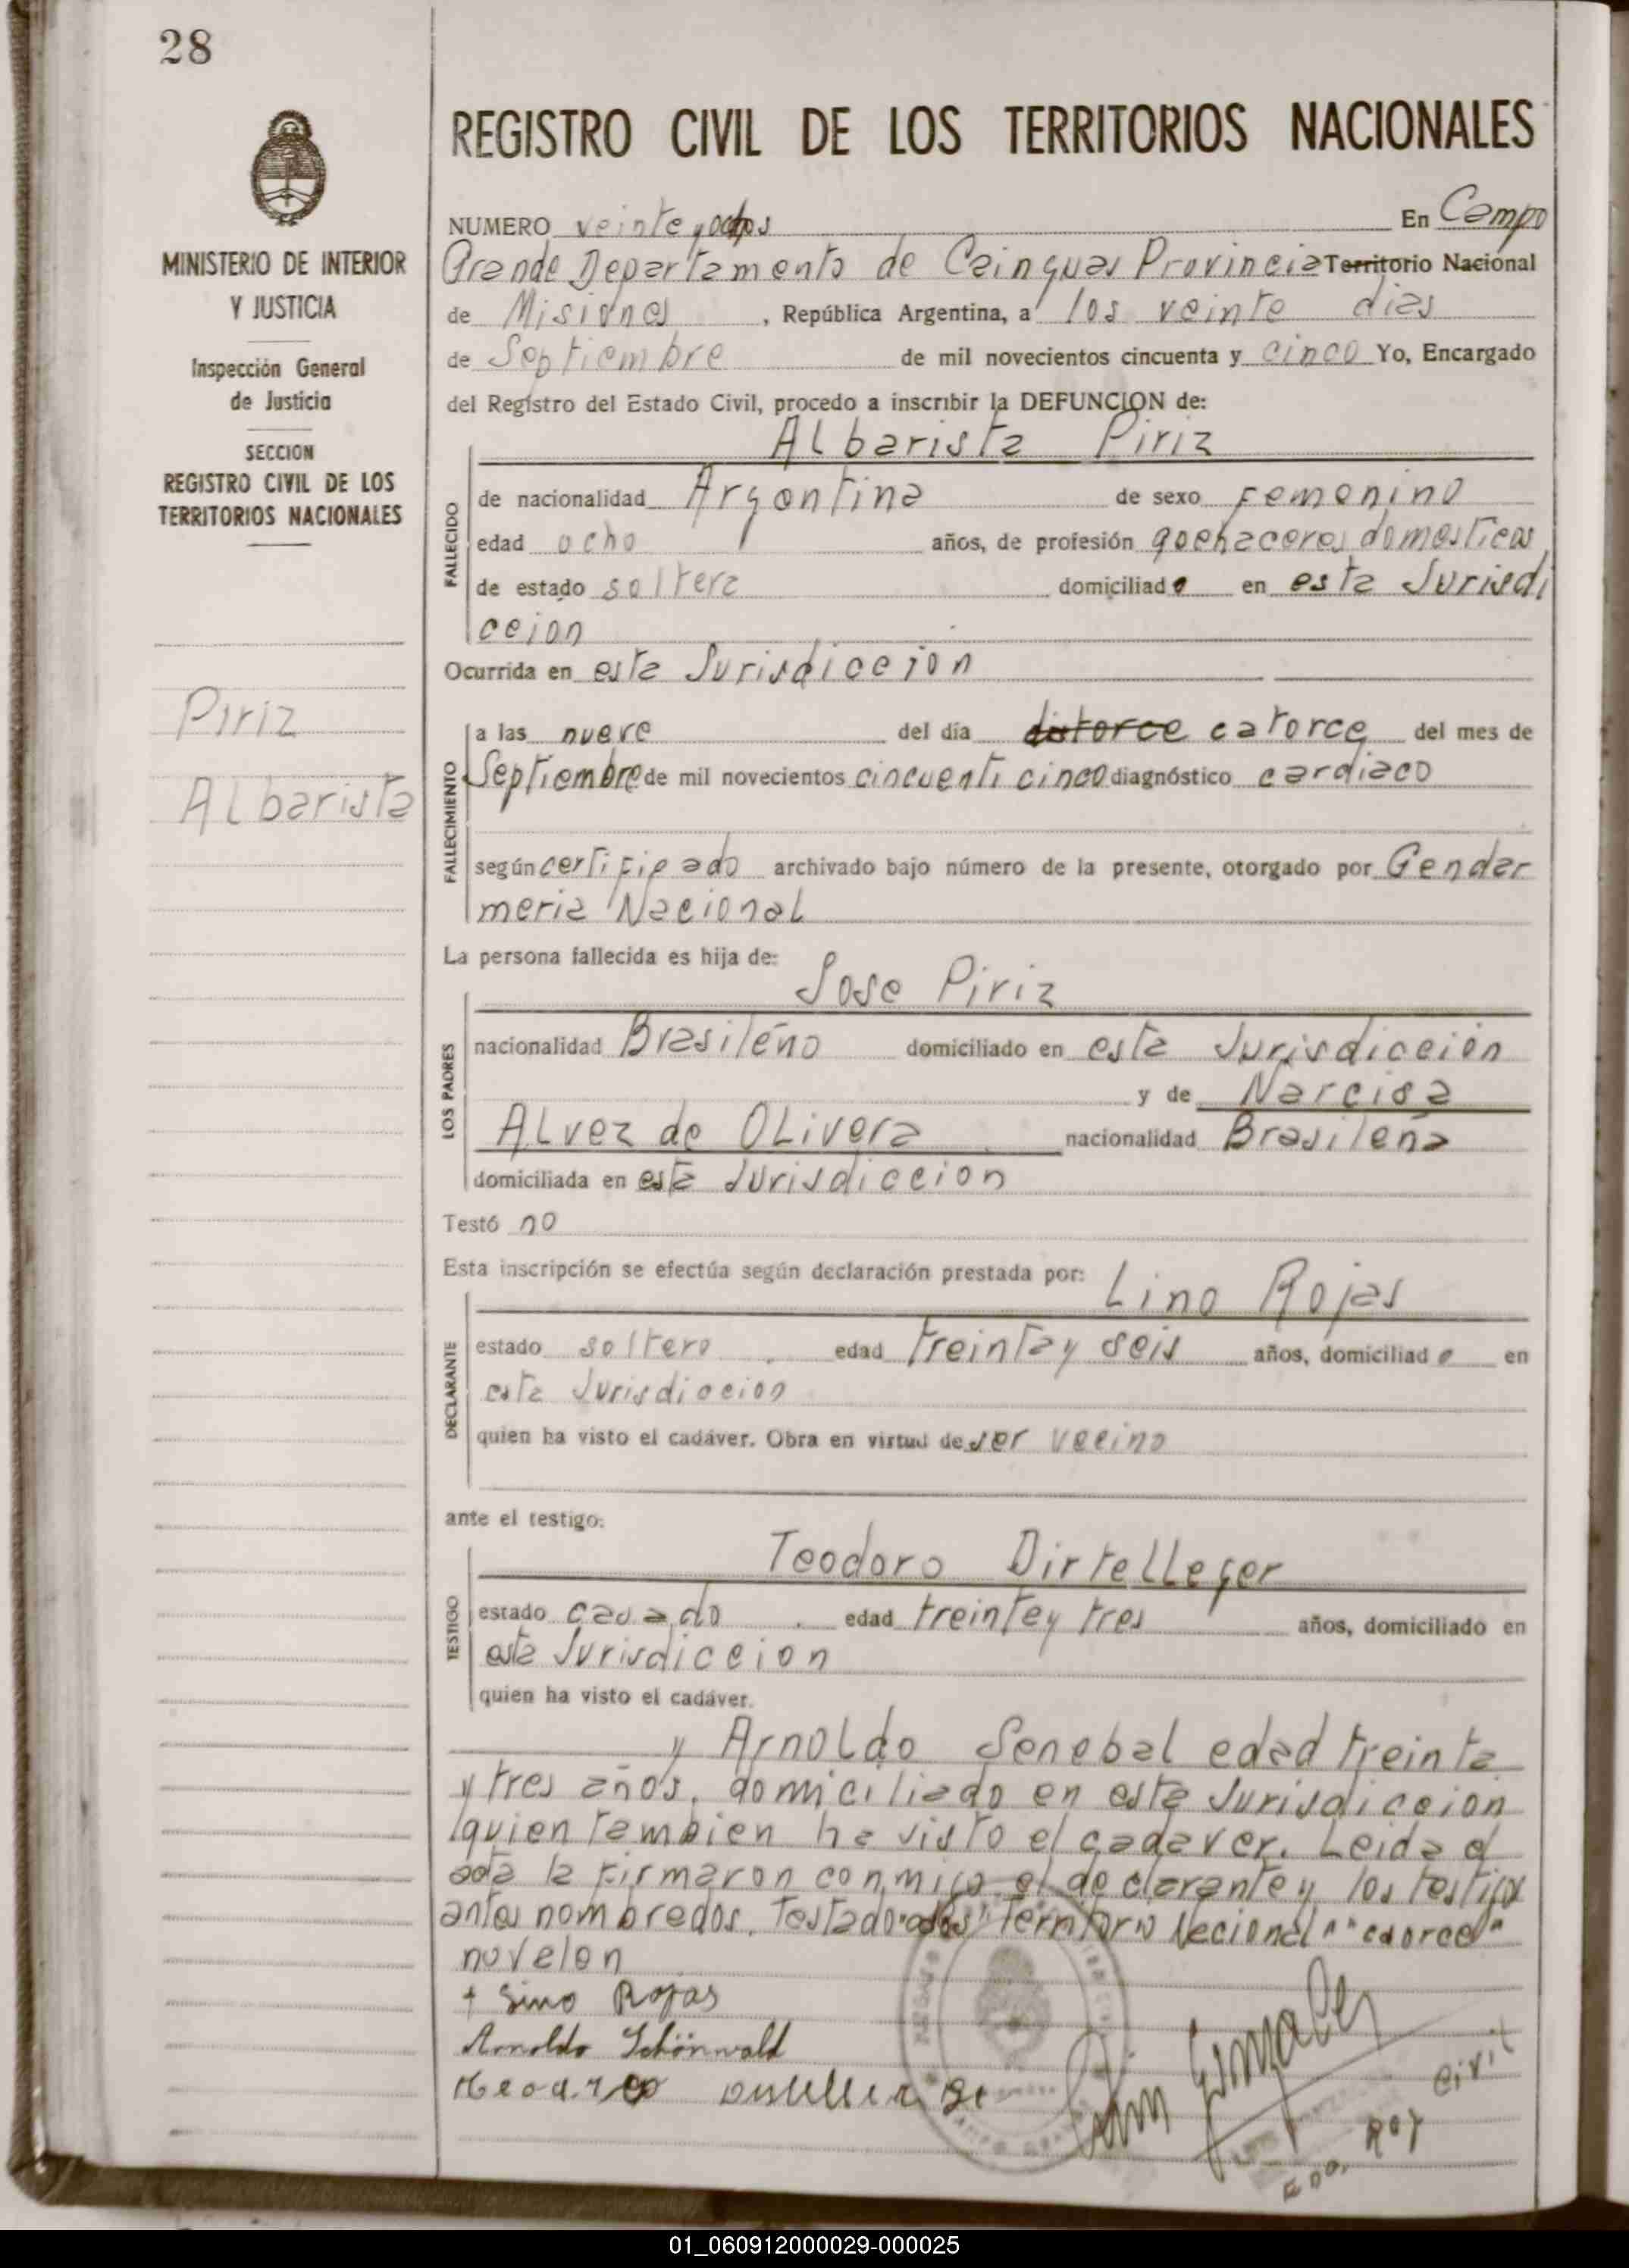 28
MINISTERIO DE INTERIOR
Y JUSTICIA
Inspección General
de Justicia
SECCION
REGISTRO CIVIL DE LOS
TERRITORIOS NACIONALES
Piriz
Albarista
REGISTRO CIVIL DE LOS TERRITORIOS NACIONALES
NUMERO veinte y En Campo
Grande Departamento de Cainguas Provincia Territorio Nacional
de Misiones, República Argentina, a los veinte dias
de Septiembre de mil novecientos cincuenta y cinco Yo, Encargado
del Registro del Estado Civil, procedo a inscribir la DEFUNCION de:
Albarista Piriz
FALLECIDO
de nacionalidad Argentina de sexo Femenino
edad ocho años, de profesión quehaceres domesticos
de estado soltera domiciliad en esta Jurisdi
ccion
Ocurrida en esta Jurisdiccion
FALLECIMIENTO
a las nueve del día catorce del mes de
Septiembre de mil novecientos cincuenti cinco diagnóstico cardiaco
según certificado archivado bajo número de la presente, otorgado por Gendar
meria Nacional
La persona fallecida es hija de:
LOS PADRES
Jose Piriz
nacionalidad Brasileño domiciliado en esta Jurisdiccion
y de Narcisa
Alvez de Olivera nacionalidad Brasileña
domiciliada en esta Jurisdiccion
Testó no
Esta inscripción se efectúa según declaración prestada por: Lino Rojas
DECLARANTE
estado soltero edad treinta y seis años, domiciliado en
esta Jurisdiccion
quien ha visto el cadáver. Obra en virtud de ser vecino
ante el testigo:
TESTIGO
Teodoro Dirtelleger
estado casado edad treinte y tres años, domiciliado en
esta Jurisdiccion
quien ha visto el cadáver.
y Arnoldo Senebal edad treinta
y tres años, domiciliado en esta Jurisdiccion
quien tambien ha visto el cadaver. Leida el
acta la firmaron conmigo el declarante y los testigos
antes nombredos. Testado Territorio Nacional
no velen
+ Lino Rojas
Arnoldo Schönwald
Gonzalez
Enc. Reg Civil
01_060912000029-000025